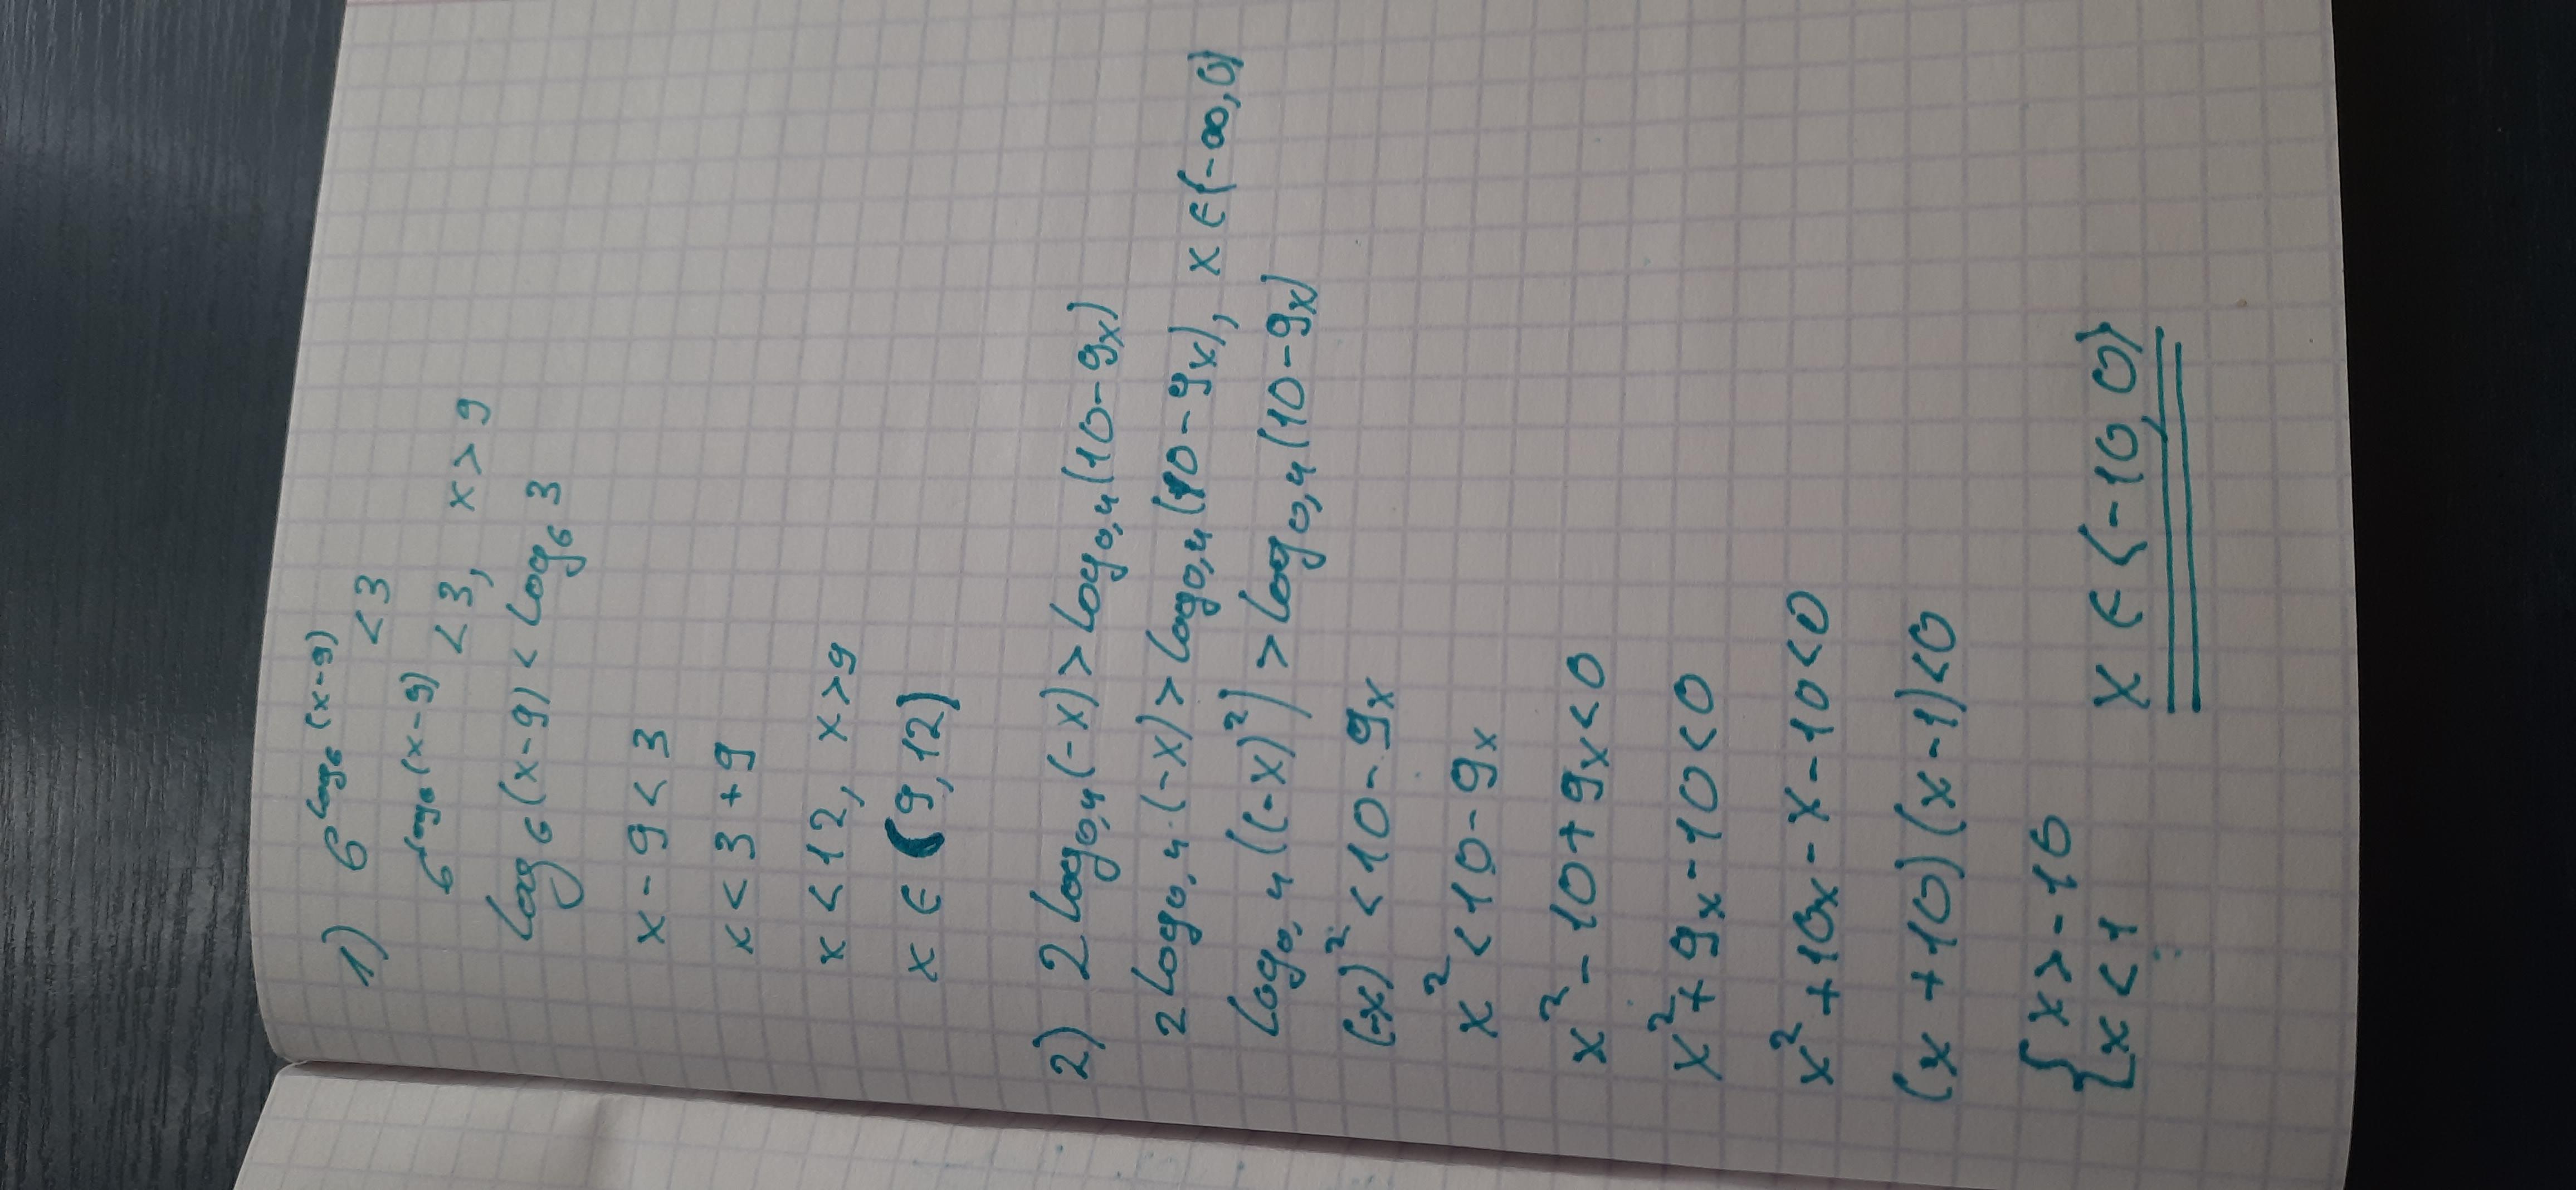 1) 6^log₆(x-9) < 3
6^log₆(x-9) < 3, x > 9
log₆(x-9) < log₆3
x - 9 < 3
x < 3 + 9
x < 12, x > 9
x ∈ (9, 12)
2) 2 log₀,₄(-x) > log₀,₄(10-9x)
2 log₀,₄·(-x) > log₀,₄(10-9x), x ∈ (-∞, 0)
log₀,₄((-x)²) > log₀,₄(10-9x)
(-x)² < 10 - 9x
x² < 10 - 9x
x² - 10 + 9x < 0
x² + 9x - 10 < 0
x² + 10x - x - 10 < 0
(x + 10)(x - 1) < 0
{x > -10
{x < 1
x ∈ (-10, 0)